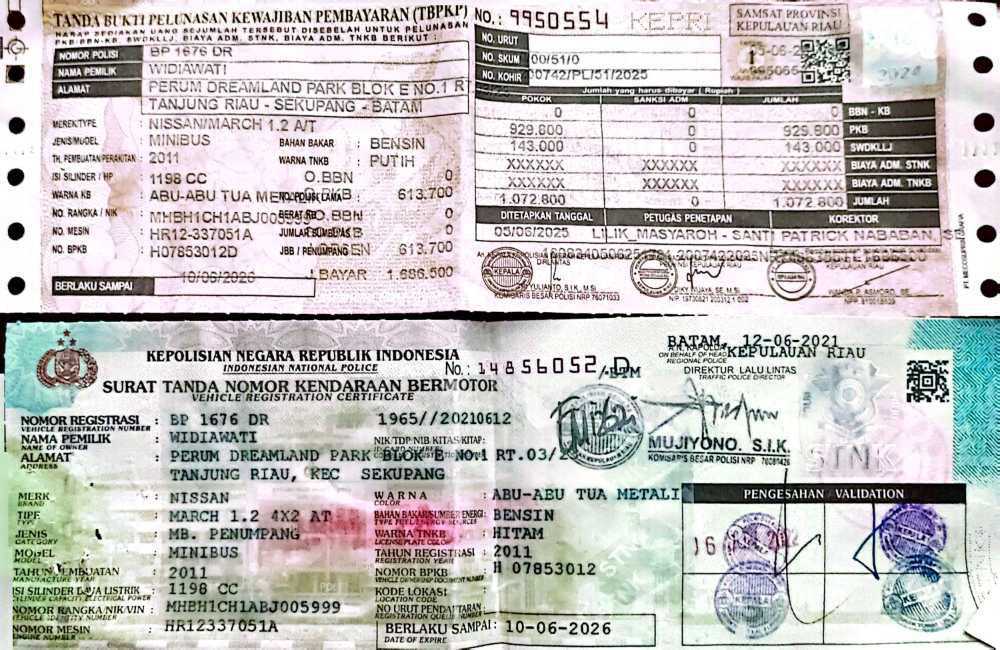 TANDA BUKTI PELUNASAN KEWAJIBAN PEMBAYARAN (TBPKP)
HARAP SEDIAKAN UANG SEJUMLAH TERSEBUT DISEBELAH UNTUK PELUNASAN
PKB BBN-KB, SWDKLLJ, BIAYA ADM. STNK, BIAYA ADM. TNKB BERIKUT :
NO.: 9950554 KEPRI
SAMSAT PROVINSI
KEPULAUAN RIAU
NOMOR POLISI : BP 1676 DR
NAMA PEMILIK : WIDIAWATI
ALAMAT : PERUM DREAMLAND PARK BLOK E NO.1 R
TANJUNG RIAU - SEKUPANG - BATAM
MEREK/TYPE : NISSAN/MARCH 1.2 A/T
JENIS/MODEL : MINIBUS
BAHAN BAKAR : BENSIN
TH. PEMBUATAN/PERAKITAN : 2011
WARNA TNKB : PUTIH
ISI SILINDER / HP : 1198 CC
O.BBN 0
WARNA KB : ABU-ABU TUA
613.700
NO. RANGKA / NIK : MHBH1CH1ABJ005999
O.BBN 0
NO. MESIN : HR12-337051A
0
NO. BPKB : H07853012D
JBB / PENUMPANG
613.700
BERLAKU SAMPAI : 10/06/2026
BAYAR 1.686.500
NO. URUT
NO. SKUM 00/51/0
NO. KOHIR 00742/PL/51/2025
2024
Jumlah yang harus dibayar ( Rupiah )
POKOK SANKSI ADM JUMLAH
0 0 0 BBN - KB
929.800 0 929.800 PKB
143.000 0 143.000 SWDKLLJ
XXXXXX XXXXXX XXXXXX BIAYA ADM. STNK
XXXXXX XXXXXX XXXXXX BIAYA ADM. TNKB
1.072.800 0 1.072.800 JUMLAH
DITETAPKAN TANGGAL PETUGAS PENETAPAN KOREKTOR
05/06/2025 LILIK_MASYAROH - SANTI PATRICK NABABAN, S
DIRLANTAS
KEPULAUAN RIAU
YULIANTO, S.I.K, M.Si
KOMISARIS BESAR POLISI NRP 76071033
KEPOLISIAN NEGARA REPUBLIK INDONESIA
INDONESIAN NATIONAL POLICE
No.: 14856052 D
SURAT TANDA NOMOR KENDARAAN BERMOTOR
VEHICLE REGISTRATION CERTIFICATE
BATAM, 12-06-2021
A.N. KAPOLDA KEPULAUAN RIAU
ON BEHALF OF HEAD
REGIONAL POLICE
DIREKTUR LALU LINTAS
TRAFFIC POLICE DIRECTOR
MUJIYONO. S.I.K.
KOMISARIS BESAR POLISI NRP
STNK
NOMOR REGISTRASI : BP 1676 DR 1965//20210612
VEHICLE REGISTRATION NUMBER
NAMA PEMILIK : WIDIAWATI
NAME OF OWNER
NIK/TDP/NIB/KITAS/KITAP:
ALAMAT : PERUM DREAMLAND PARK BLOK E NO.1 RT.03/
ADDRESS
TANJUNG RIAU, KEC SEKUPANG
MERK : NISSAN
BRAND
WARNA : ABU-ABU TUA METALI
COLOR
TIPE : MARCH 1.2 4X2 AT
TYPE
BAHAN BAKAR/SUMBER ENERGI: BENSIN
TYPE FUEL/ENERGY SOURCES
JENIS : MB. PENUMPANG
CATEGORY
WARNA TNKB : HITAM
LICENSE PLATE COLOR
MODEL : MINIBUS
MODEL
TAHUN REGISTRASI : 2011
REGISTRATION YEAR
TAHUN PEMBUATAN : 2011
MANUFACTURE YEAR
NOMOR BPKB : H 07853012
VEHICLE OWNERSHIP DOCUMENT NUMBER
ISI SILINDER/DAYA LISTRIK : 1198 CC
CYLINDER CAPACITY/ELECTRICAL POWER
KODE LOKASI :
LOCATION CODE
NOMOR RANGKA/NIK/VIN : MHBH1CH1ABJ005999
VEHICLE IDENTITY NUMBER
NO URUT PENDAFTARAN
REGISTRATION QUEUE NUMBER
NOMOR MESIN : HR12337051A
ENGINE NUMBER
BERLAKU SAMPAI : 10-06-2026
DATE OF EXPIRE
PENGESAHAN / VALIDATION